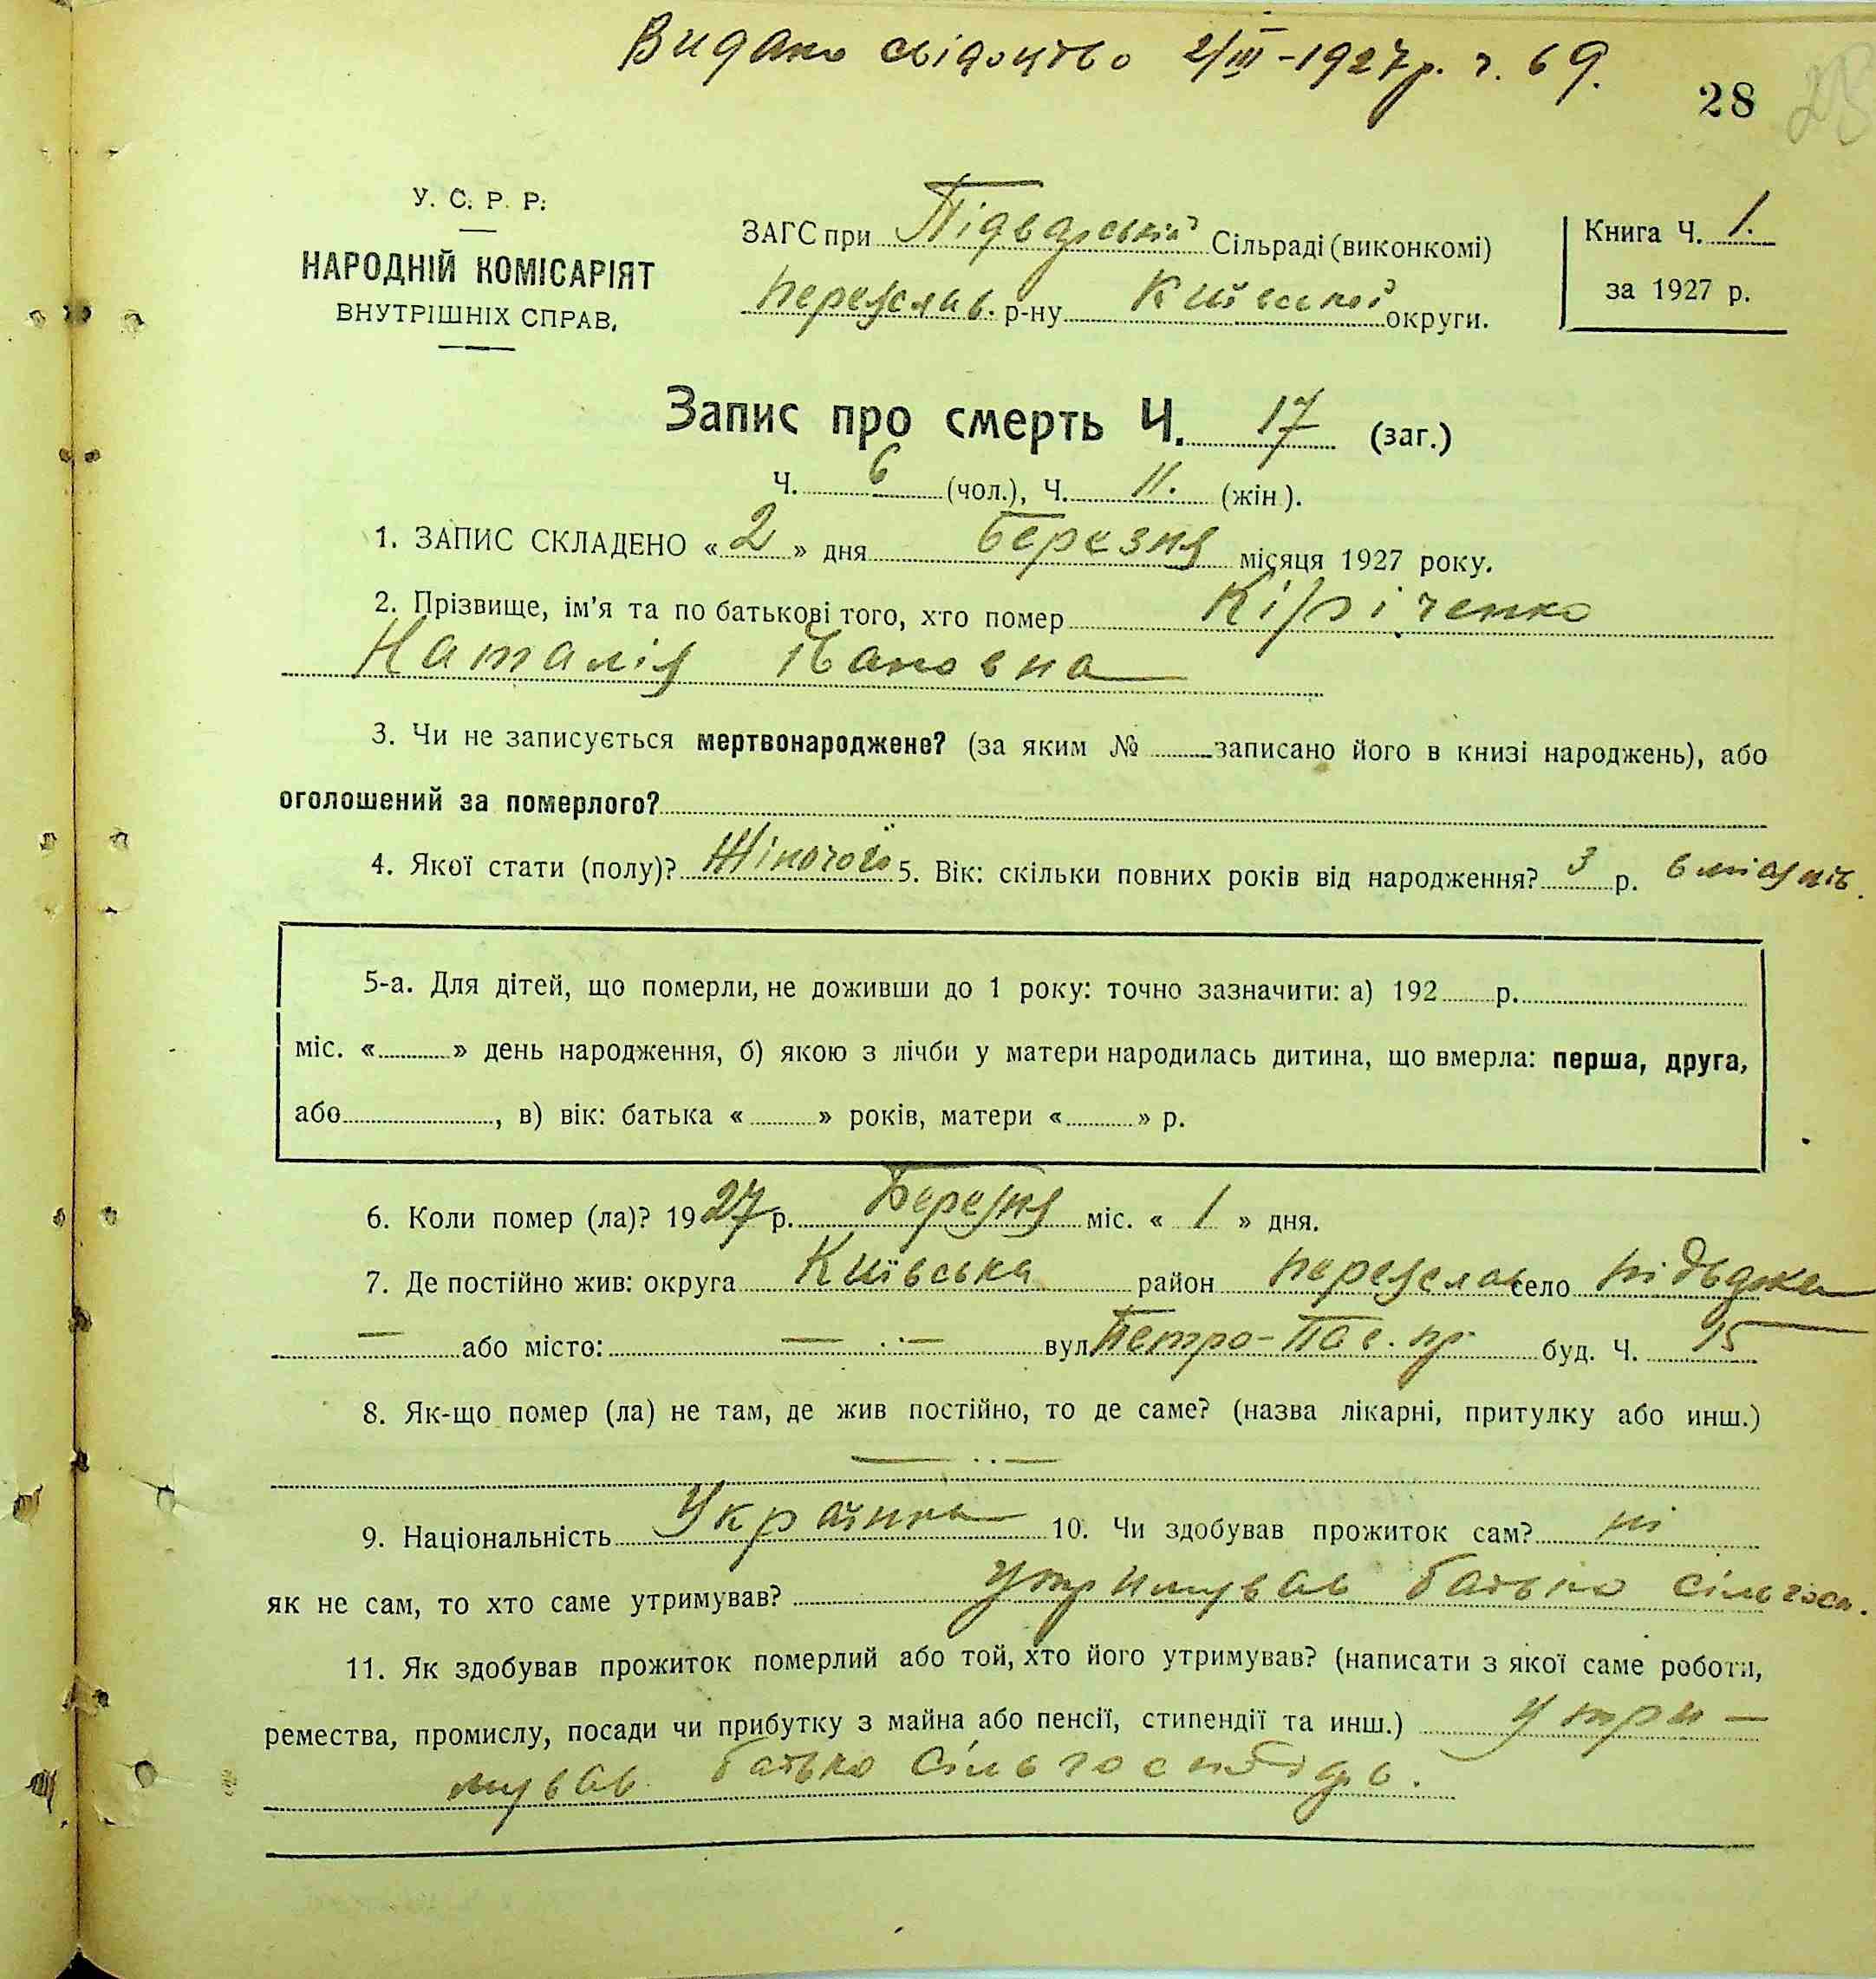 Видано свідоцтво 2/III-1927 р. ч. 69.
28
28
У. С. Р. Р.
НАРОДНІЙ КОМІСАРІЯТ
ВНУТРІШНІХ СПРАВ.
ЗАГС при Сільраді (виконкомі)
Переяслав. р-ну Київської округи.
Книга Ч. 1.
за 1927 р.
Запис про смерть Ч. 17 (заг.)
Ч. 6 (чол.), Ч. 11. (жін.).
1. ЗАПИС СКЛАДЕНО «2» дня Березня місяця 1927 року.
2. Прізвище, ім'я та по батькові того, хто помер Кіріченко
Наталія Пановна
3. Чи не записується мертвонароджене? (за яким № записано його в книзі народжень), або
оголошений за померлого?
4. Якої стати (полу)? Жіночої 5. Вік: скільки повних років від народження? 3 р. 6 місяців.
5-а. Для дітей, що померли, не доживши до 1 року: точно зазначити: а) 192 р.
міс. « » день народження, б) якою з лічби у матери народилась дитина, що вмерла: перша, друга,
або , в) вік: батька « » років, матери « » р.
6. Коли помер (ла)? 1927 р. Березня міс. « 1 » дня.
7. Де постійно жив: округа Київська район Переяслав село
— або місто: — . — вул. Петро-Пав. пр. буд. Ч. 15
8. Як-що помер (ла) не там, де жив постійно, то де саме? (назва лікарні, притулку або инш.)
— .. —
9. Національність Українка 10. Чи здобував прожиток сам? ні
як не сам, то хто саме утримував? утримував батько сільгосп.
11. Як здобував прожиток померлий або той, хто його утримував? (написати з якої саме роботи,
ремества, промислу, посади чи прибутку з майна або пенсії, стипендії та инш.) утри-
мував батько